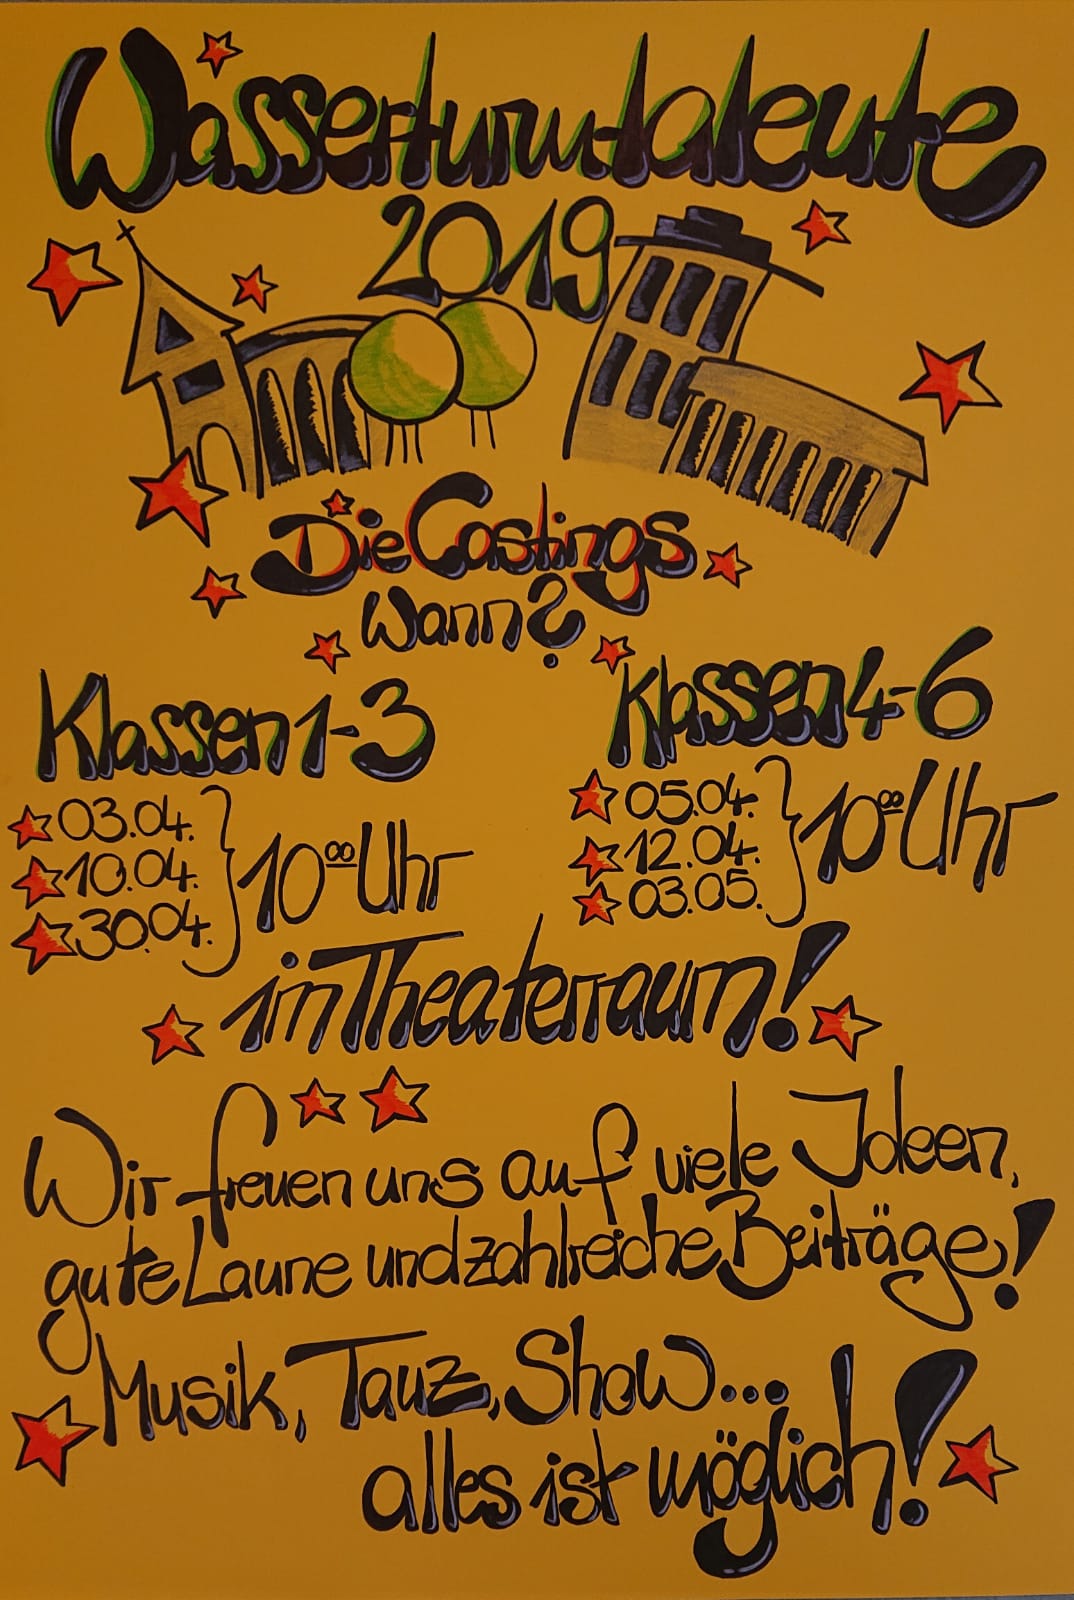 Wasserturmtalente
2019
Die Castings
Wann?
Klassen 1-3
03.04.
10.04.
30.04.
10⁰⁰ Uhr
Klassen 4-6
05.04.
12.04.
03.05.
10⁰⁰ Uhr
im Theaterraum!
Wir freuen uns auf viele Ideen,
gute Laune und zahlreiche Beiträge!
Musik, Tanz, Show...
alles ist möglich!